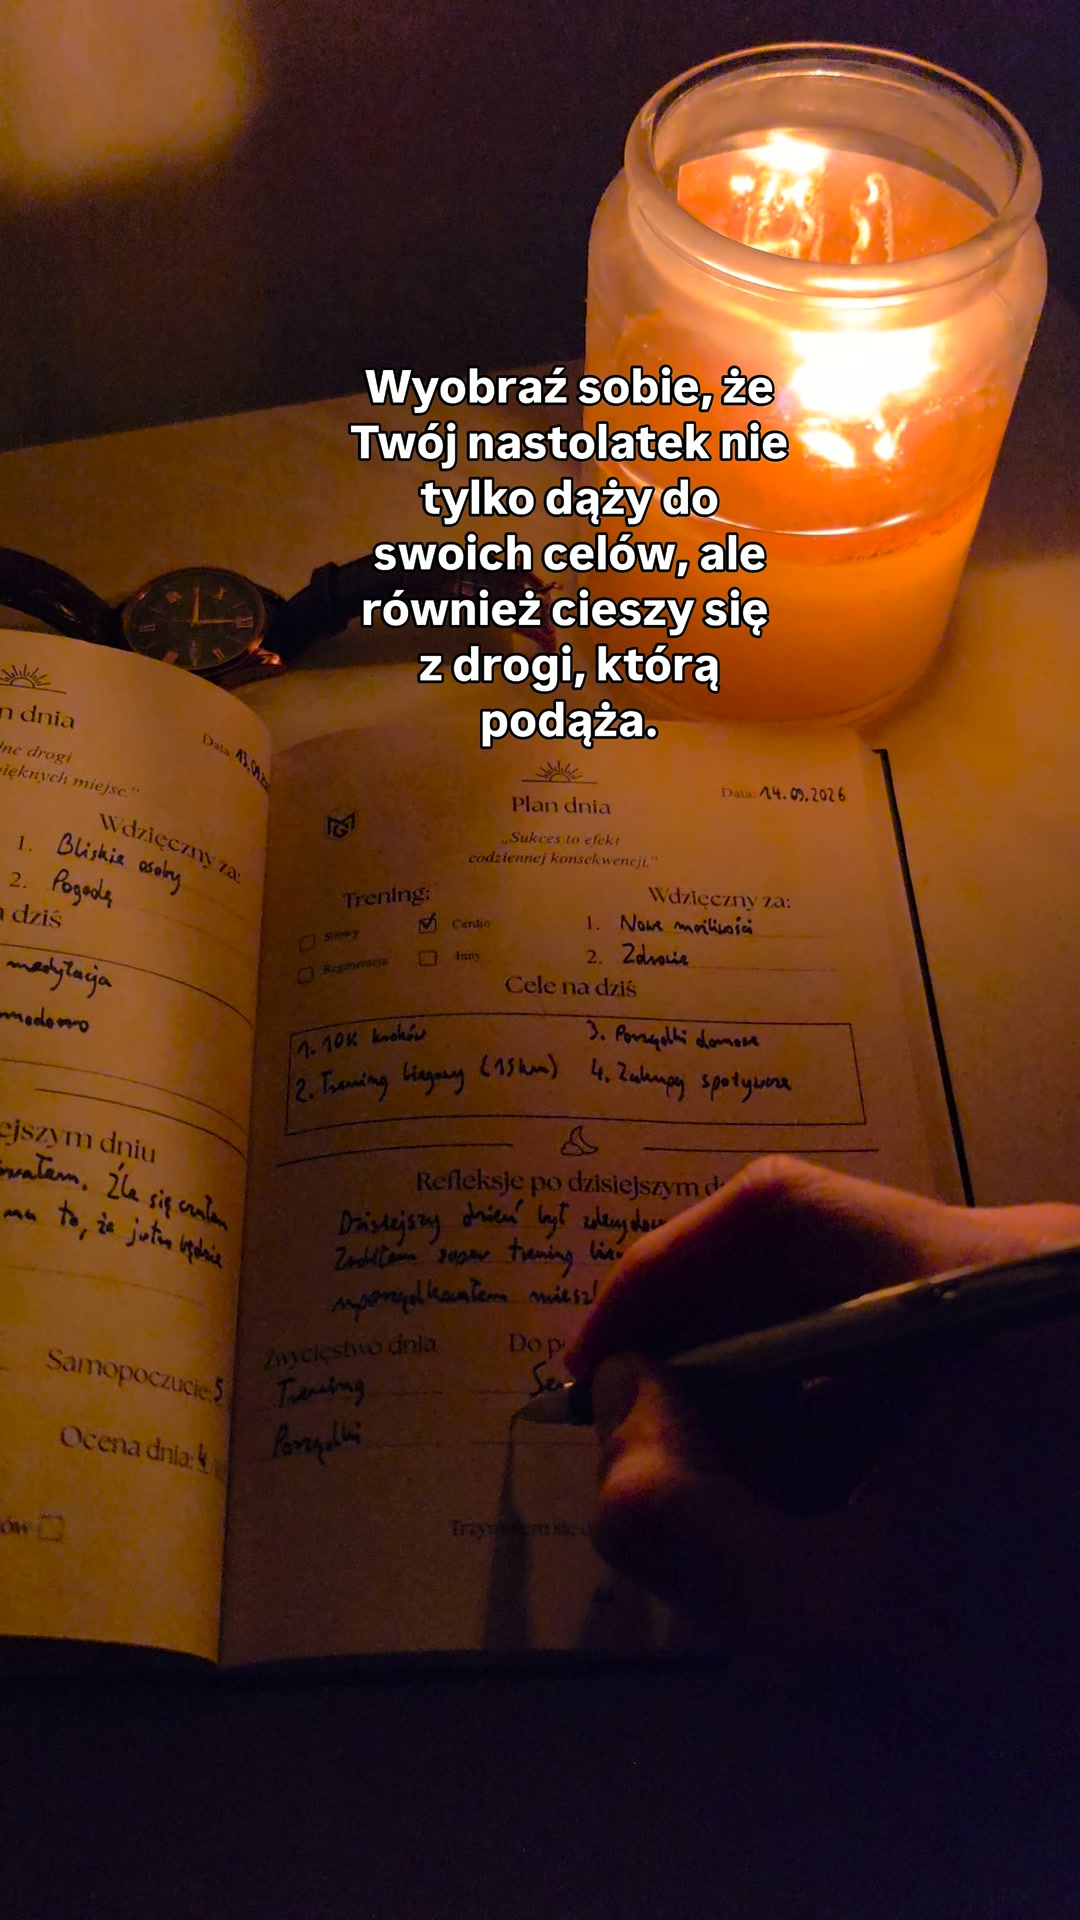 Wyobraź sobie, że
Twój nastolatek nie
tylko dąży do
swoich celów, ale
również cieszy się
z drogi, którą
podąża.
n dnia
Data: 13.09.
ne drogi
pięknych miejsc."
Wdzięczny za:
1. Bliskie osoby
2. Pogodę
a dziś
medytacja
ejszym dniu
Źle się czułem
na to, że jutro będzie
Samopoczucie: 5
Ocena dnia: 4
ów
Plan dnia
Data: 14.09.2026
„Sukces to efekt
codziennej konsekwencji."
Trening:
Siłowy
Cardio
Regeneracja
Inny
Wdzięczny za:
1. Nowe możliwości
2. Zdrowie
Cele na dziś
1. 10K kroków
2. Trening biegowy (15km)
3. Porządki domowe
4. Zakupy spożywcze
Refleksje po dzisiejszym d
Dzisiejszy dzień był zdecydow
Zrobiłem super trening bie
uporządkowałem miesz
Zwycięstwo dnia
Trening
Porządki
Do p
Se